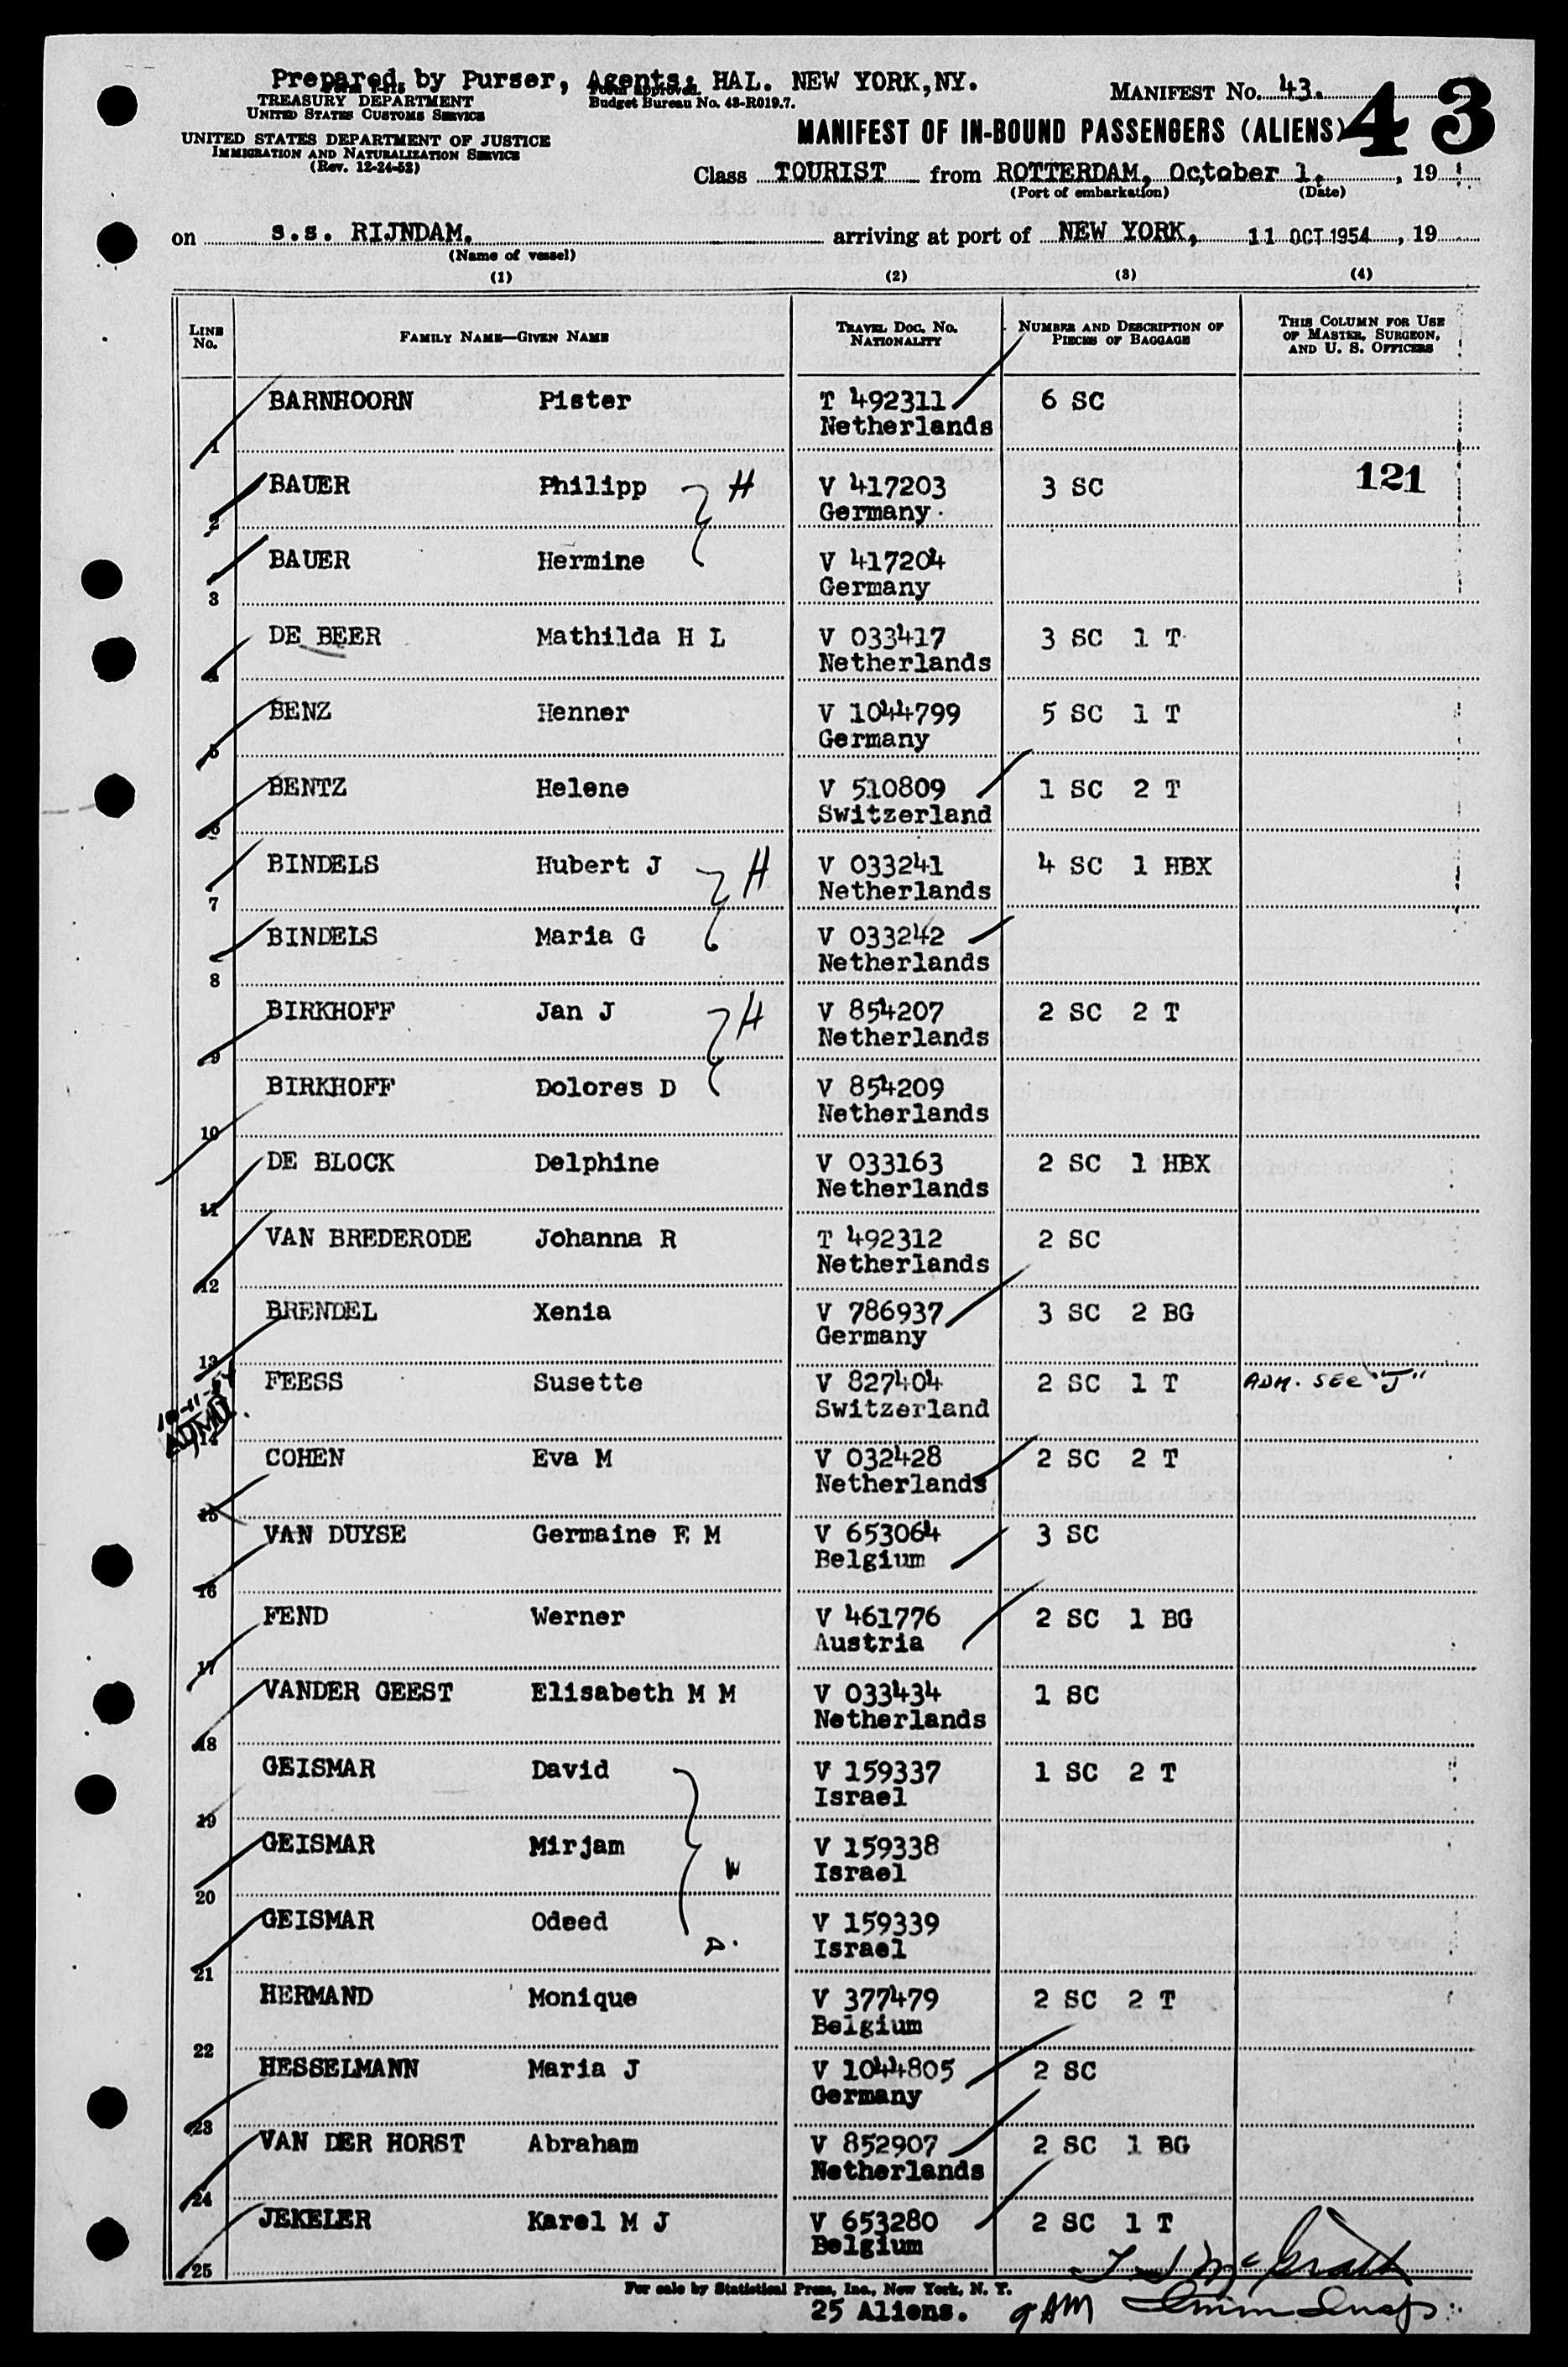 Prepared by Purser, Agents: HAL. NEW YORK,NY.
TREASURY DEPARTMENT
UNITED STATES CUSTOMS SERVICE
Budget Bureau No. 43-R019.7.
MANIFEST No. 43.
43
UNITED STATES DEPARTMENT OF JUSTICE
IMMIGRATION AND NATURALIZATION SERVICE
(Rev. 12-24-52)
MANIFEST OF IN-BOUND PASSENGERS (ALIENS)
Class TOURIST from ROTTERDAM, October 1, , 19
(Port of embarkation) (Date)
on s.s. RIJNDAM. arriving at port of NEW YORK, 11 OCT 1954, 19
(Name of vessel)
(1) (2) (3) (4)
LINE No. FAMILY NAME—GIVEN NAME TRAVEL DOC. No. NATIONALITY NUMBER AND DESCRIPTION OF PIECES OF BAGGAGE THIS COLUMN FOR USE OF MASTER, SURGEON, AND U. S. OFFICERS
BARNHOORN Pister T 492311 6 SC
1 Netherlands
BAUER Philipp H V 417203 3 SC 121
2 Germany
BAUER Hermine V 417204
3 Germany
DE BEER Mathilda H L V 033417 3 SC 1 T
4 Netherlands
BENZ Henner V 1044799 5 SC 1 T
5 Germany
BENTZ Helene V 510809 1 SC 2 T
6 Switzerland
BINDELS Hubert J H V 033241 4 SC 1 HBX
7 Netherlands
BINDELS Maria G V 033242
8 Netherlands
BIRKHOFF Jan J H V 854207 2 SC 2 T
9 Netherlands
BIRKHOFF Dolores D V 854209
10 Netherlands
DE BLOCK Delphine V 033163 2 SC 1 HBX
11 Netherlands
VAN BREDERODE Johanna R T 492312 2 SC
12 Netherlands
BRENDEL Xenia V 786937 3 SC 2 BG
13 Germany
FEESS Susette V 827404 2 SC 1 T ADM. SEC "J"
14 Switzerland
COHEN Eva M V 032428 2 SC 2 T
15 Netherlands
VAN DUYSE Germaine E M V 653064 3 SC
16 Belgium
FEND Werner V 461776 2 SC 1 BG
17 Austria
VANDER GEEST Elisabeth M M V 033434 1 SC
18 Netherlands
GEISMAR David V 159337 1 SC 2 T
19 Israel
GEISMAR Mirjam V 159338
20 Israel
GEISMAR Odeed V 159339
21 Israel
HERMAND Monique V 377479 2 SC 2 T
22 Belgium
HESSELMANN Maria J V 1044805 2 SC
23 Germany
VAN DER HORST Abraham V 852907 2 SC 1 BG
24 Netherlands
JEKELER Karel M J V 653280 2 SC 1 T
25 Belgium
For sale by Statistical Press, Inc., New York, N. Y.
25 Aliens. 9 AM